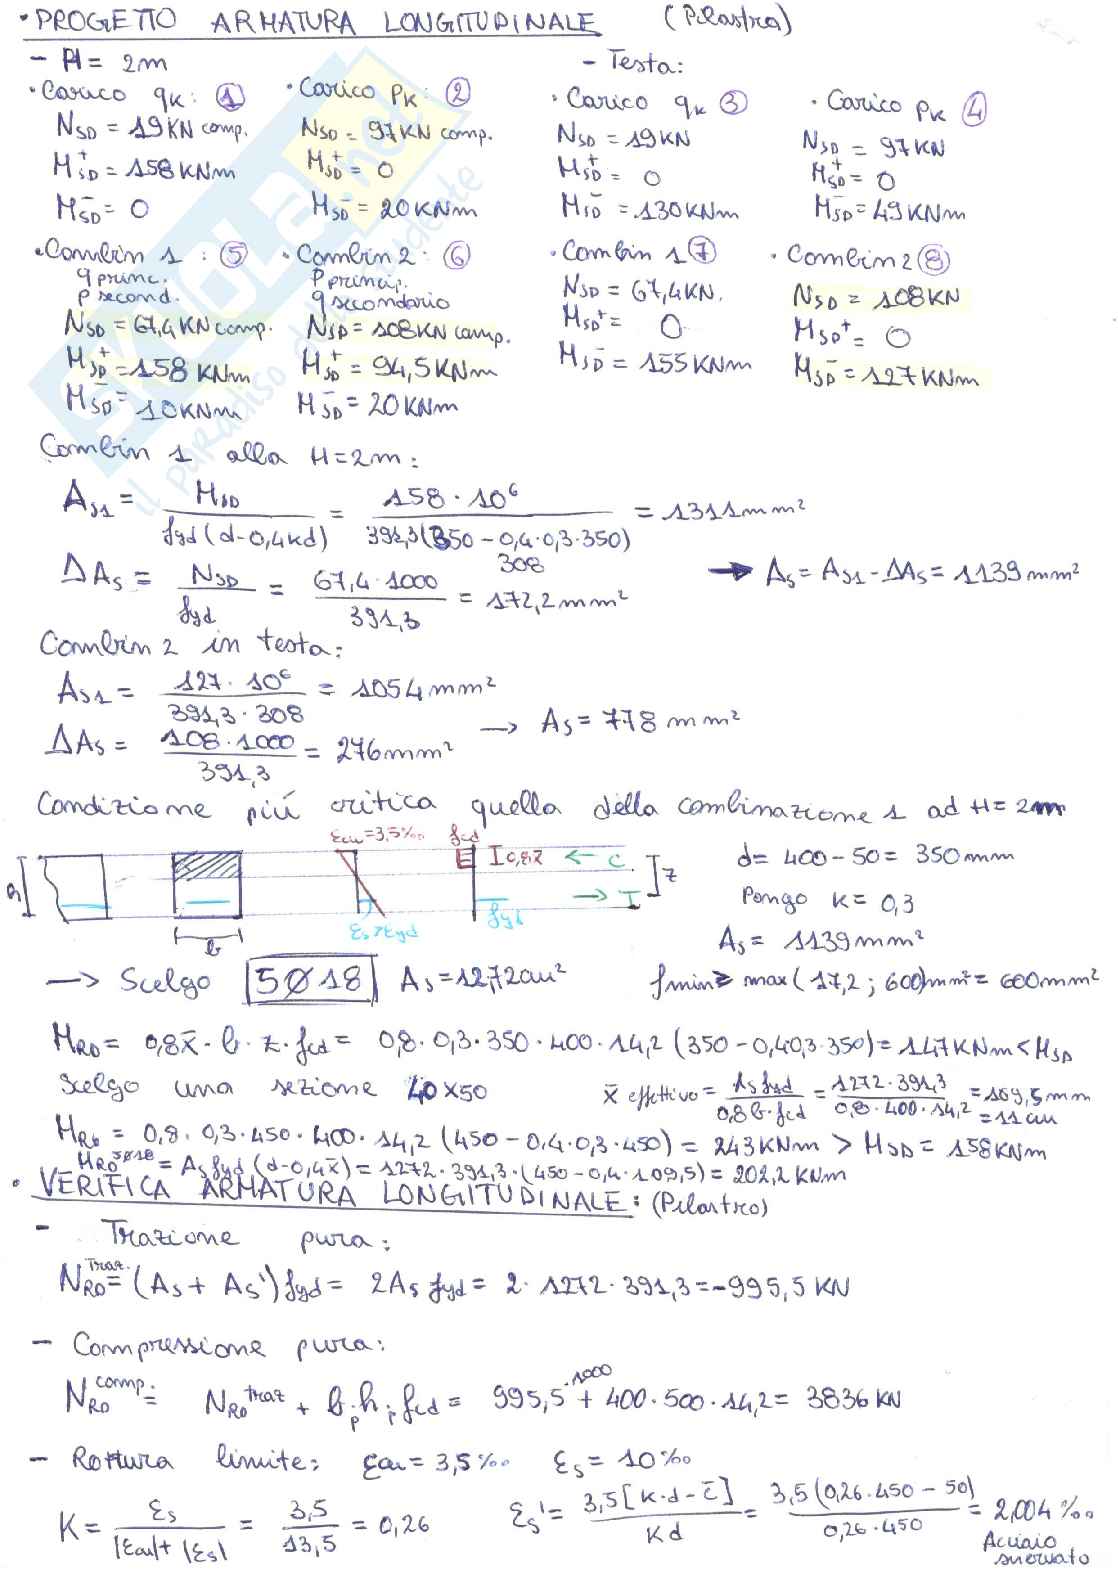 • PROGETTO ARMATURA LONGITUDINALE (Pilastro)
- H = 2m
- Testa:
• Carico qk: 1
NSD = 19KN comp.
M+SD = 158KNm
M-SD = 0
• Carico Pk: 2
NSD = 97KN comp.
M+SD = 0
MSD- = 20KNm
• Carico qk 3
NSD = 19KN
M+SD = 0
M-SD = 130KNm
• Carico Pk 4
NSD = 97KN
M+SD = 0
M-SD = 49KNm
• Combin 1 : 5
q princ.
p second.
NSD = 67,4KN comp.
M+SD = 158 KNm
M-SD = 10KNm
• Combin 2 : 6
P princip.
q secondario
NSD = 108KN comp.
M+SD = 94,5KNm
M-SD = 20KNm
• Combin 1 7
NSD = 67,4KN.
MSD+ = 0
MSD- = 155KNm
• Combin 2 8
NSD = 108KN
MSD+ = 0
MSD- = 127KNm
Combin 1 alla H=2m:
AS1 = MSD / fyd (d-0,4kd) = 158 · 10^6 / 391,3(350 - 0,4·0,3·350) = 1311mm²
308
ΔAs = NSD / fyd = 67,4·1000 / 391,3 = 172,2mm² → As = AS1 - ΔAs = 1139mm²
Combin 2 in testa:
AS1 = 127·10^6 / 391,3·308 = 1054mm²
→ As = 778mm²
ΔAs = 108·1000 / 391,3 = 276mm²
Condizione più critica quella della combinazione 1 ad H=2m
εcu=3,5‰ fcd
I 0,8x̄ ← C
h
z
d= 400-50= 350mm
→ T
Pongo K= 0,3
b
εs>εyd
fyd
As= 1139mm²
→ Scelgo 5Ø18 As=12,72cm²
fmin≥ max(17,2 ; 600)mm²= 600mm²
MRD= 0,8x̄·b·z·fcd= 0,8·0,3·350·400·14,2(350-0,40,3·350)= 147KNm<MSD
Scelgo una sezione 40x50
x̄ effettivo = As fyd / 0,8 b·fcd = 1272·391,3 / 0,8·400·14,2 = 109,5mm
= 11cm
MRD = 0,8·0,3·450·400·14,2(450-0,4·0,3·450)= 243KNm > MSD= 158KNm
MRD5Ø18 = As fyd (d-0,4x̄)= 1272·391,3·(450-0,4·109,5)= 202,2KNm
• VERIFICA ARMATURA LONGITUDINALE: (Pilastro)
- Trazione pura:
NRDTraz. = (As+As')fyd = 2As fyd = 2·1272·391,3=-995,5KN
- Compressione pura:
NRDcomp. = NRDtraz + bp·hp·fcd = 995,5·1000 + 400·500·14,2= 3836KN
- Rottura limite: εcu= 3,5‰ εs= 10‰
K= εs / |εcu|+|εs| = 3,5 / 13,5 = 0,26
εs'= 3,5[K·d-c̄] / Kd = 3,5(0,26·450-50) / 0,26·450 = 2,004‰
Acciaio
snervato
SKUOLA.net
il paradiso dello studente